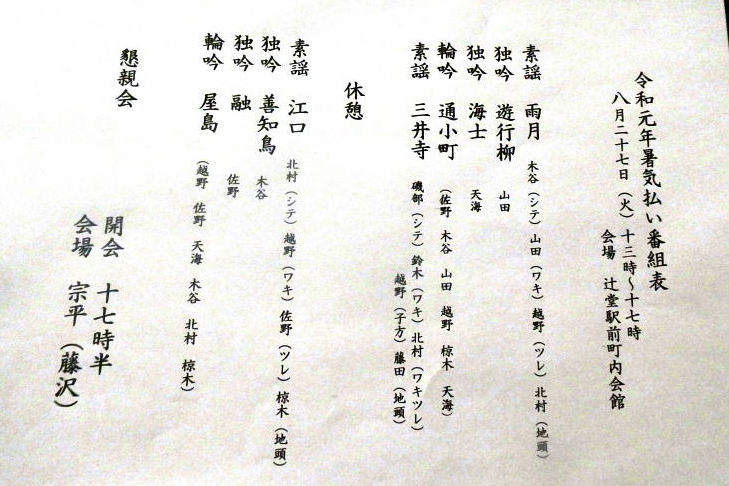 令和元年暑気払い番組表
八月二十七日（火）十三時～十七時
会場 辻堂駅前町内会館
素謡 雨月 木谷（シテ）山田（ワキ）越野（ツレ）北村（地頭）
独吟 遊行柳 山田
独吟 海士 天海
輪吟 通小町 （佐野 木谷 山田 越野 椋木 天海）
素謡 三井寺 磯部（シテ）鈴木（ワキ）北村（ワキツレ）
越野（子方）藤田（地頭）
休憩
素謡 江口 北村（シテ）越野（ワキ）佐野（ツレ）椋木（地頭）
独吟 善知鳥 木谷
独吟 融 佐野
輪吟 屋島 （越野 佐野 天海 木谷 北村 椋木）
懇親会
開会 十七時半
会場 宗平（藤沢）